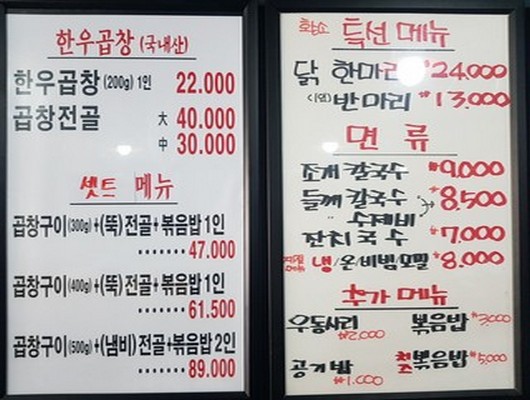 한우곱창 (국내산)
한우곱창 (200g) 1인 22.000
곱창전골 大 40.000
中 30.000
셋트 메뉴
곱창구이(300g)+(뚝)전골+볶음밥 1인
······· 47.000
곱창구이(400g)+(뚝)전골+볶음밥 1인
······· 61.500
곱창구이(500g)+(냄비)전골+볶음밥 2인
······· 89.000
특선 메뉴
닭 한마리 ₩24,000
(1인) 반마리 ₩13,000
면 류
조개 칼국수 ₩9,000
들깨 칼국수 ₩8,500
수제비
잔치국수 ₩7,000
냉/온/비빔/모밀 ₩8,000
추가 메뉴
우동사리 ₩2,000
볶음밥 ₩3,000
공기밥 ₩1,000
치즈볶음밥 ₩5,000